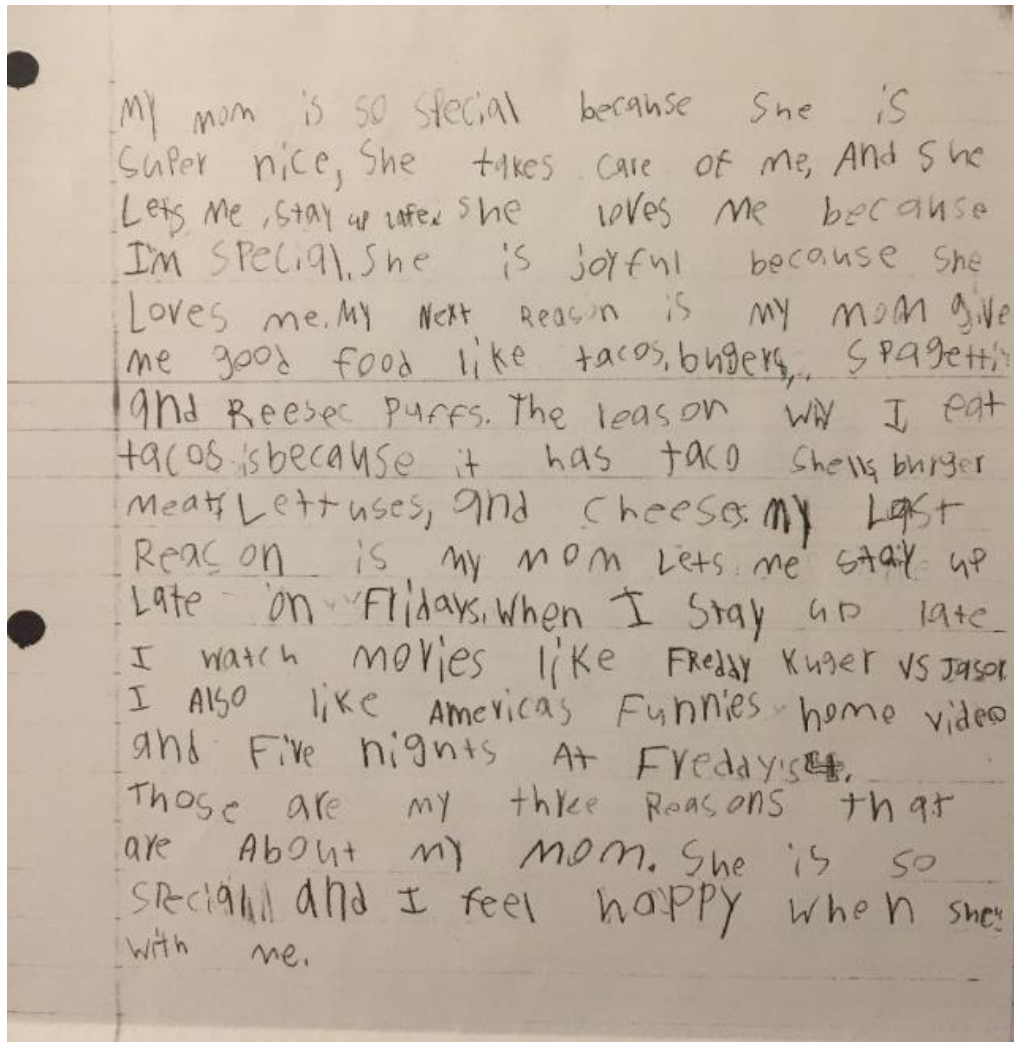 My mom is so special because she is
super nice, She takes care of me, And she
Lets Me, stay up late. she loves me because
I'm special. She is joyful because she
Loves me. My Next Reason is my mom give
me good food like tacos, bugers, spagetti
and Reeses Puffs. The leason why I eat
tacos is because it has taco shells, burger
meat, Lettuses, and cheeses. my Last
Reason is my mom Lets me stay up
Late on Fridays. When I stay up late
I watch movies like FReddy Kuger vs Jason
I Also like Americas Funnies home video
and Five nights At Freddy's 4.
Those are my three Reasons that
are About my mom. She is so
special and I feel happy when she's
with me.